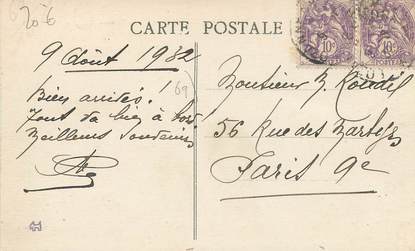 20€
CARTE POSTALE
10c 10c
POSTES
9 Août 1932
(69)
Bien arrivés.
Tout va bien à bord
Meilleurs Souvenirs
Monsieur R. Roudil
56 Rue des Martyrs
Paris 9e